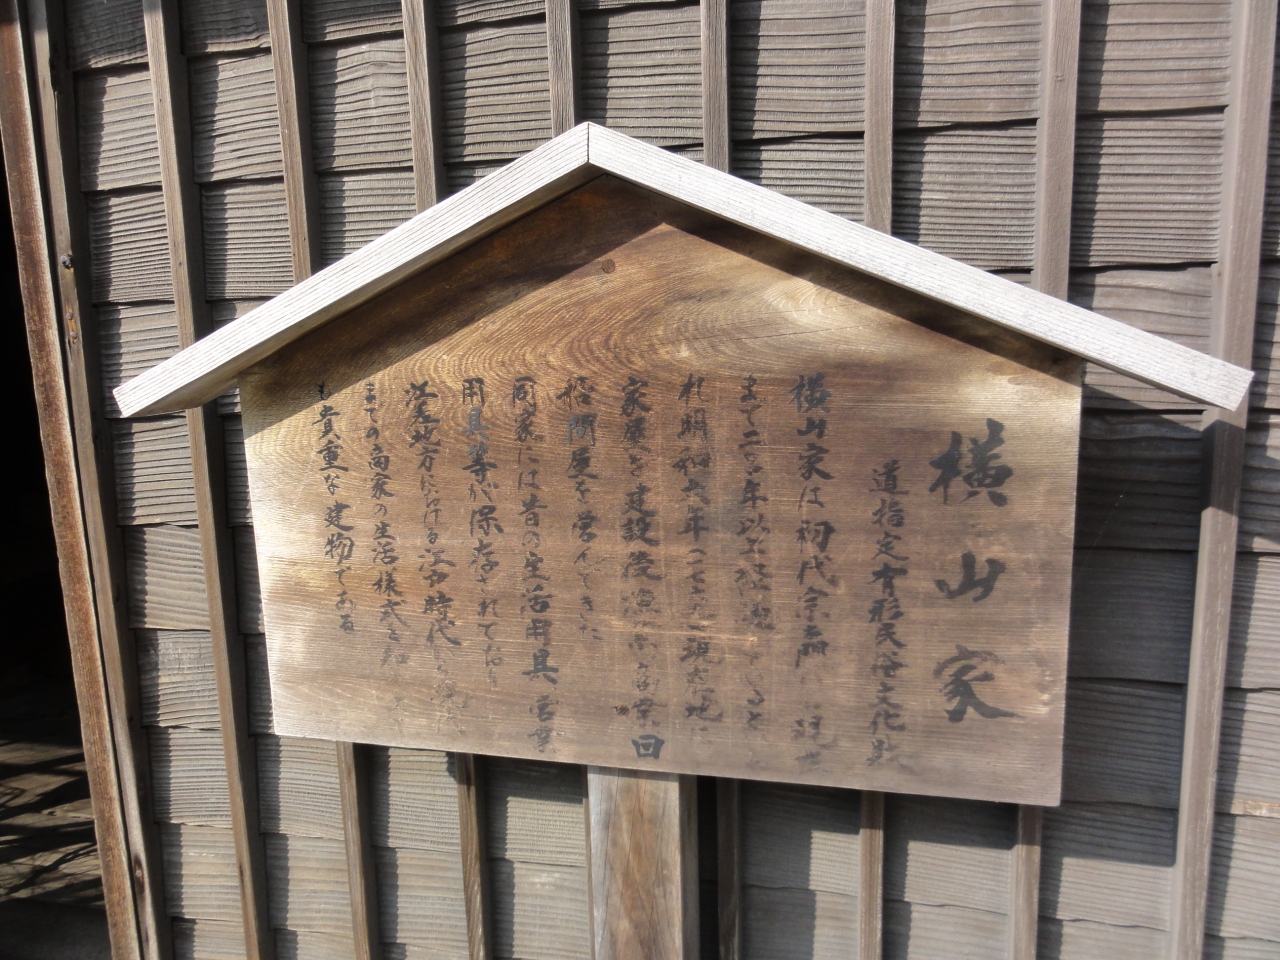 横山家
道指定有形民俗文化財
横山家は初代宗右衛門
まで二百年以上経過
れ明和六年(一七六九)現在地に
家屋を建設後漁業商業回
船問屋を営んできた
同家には昔の生活用具、営業
用具等が保存されており
江差地方における江戸時代
までの商家の生活様式を
も貴重な建物である